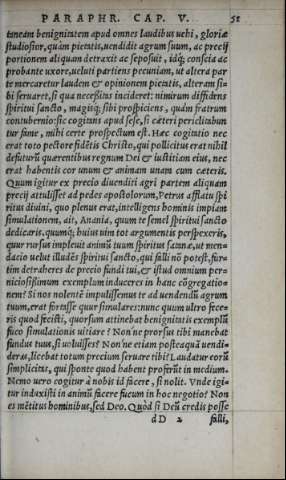 PARAPHR. CAP. V. 52
taneam benignitatem apud omnes laudibus uehi, gloriæ
studiosior, quàm pietatis, uendidit agrum suum, ac precij
portionem aliquam detraxit ac seposuit, idq; conscia ac
probante uxore, ueluti partiens pecuniam, ut altera par
te mercaretur laudem & opinionem pietatis, alteram si-
bi seruaret, si qua necessitas incideret: nimirum diffidens
spiritui sancto, magisq; sibi prospiciens, quàm fratrum
contubernio: sic cogitans apud sese, si cæteri periclitabun
tur fame, mihi certe prospectum est. Hæc cogitatio nec
erat toto pectore fidētis Christo, qui pollicitus erat nihil
defuturū quærentibus regnum Dei & iustitiam eius, nec
erat habentis cor unum & animam unam cum cæteris.
Quum igitur ex precio diuenditi agri partem aliquam
precij attulisset ad pedes apostolorum, Petrus afflatu spi
ritus diuini, quo plenus erat, intelligens hominis impiam
simulationem, ait, Anania, quum te semel spiritui sancto
dedicaris, quumq; huius uim tot argumentis perspexeris,
quur rursus impleuit animū tuum spiritus satanæ, ut men-
dacio uelut illudēs spiritui sancto, qui falli nō potest, fur-
tim detraheres de precio fundi tui, & istud omnium per-
niciosissimum exemplum induceres in hanc cōgregatio-
nem? Si nos nolentē impulissemus te ad uendendū agrum
tuum, erat fortasse quur simulares: nunc quum ultro fece-
ris quod fecisti, quorsum attinebat benignitatis exemplū
fuco simulationis uitiare? Non'ne prorsus tibi manebat
fundus tuus, si uoluisses? Non'ne etiam posteaquā uendi-
deras, licebat totum precium seruare tibi? Laudatur eorū
simplicitas, qui sponte quod habent proferūt in medium.
Nemo uero cogitur à nobis id facere, si nolit. Vnde igi-
tur induxisti in animū facere fucum in hoc negotio? Non
es mētitus hominibus, sed Deo. Quòd si Deū credis posse
dD 2 falli,